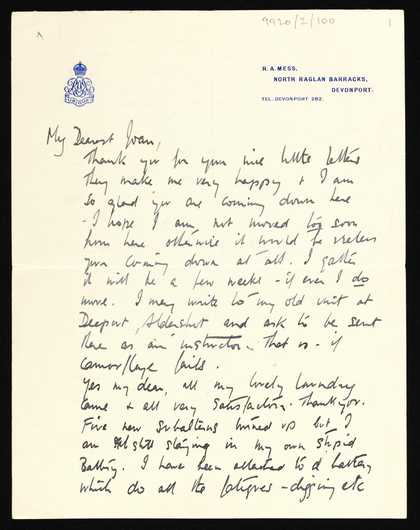 9920/2/100
1
R.A. MESS,
NORTH RAGLAN BARRACKS,
DEVONPORT.
TEL. DEVONPORT 282.
My Dearest Joan,
Thank you for your nice little letters
They make me very happy & I am
so glad you are coming down here
- I hope I am not moved too soon
from here otherwise it would be useless
your coming down at all. I gather
it will be a few weeks - if even I do
move. I may write to my old unit at
Deepcut, Aldershot and ask to be sent
there as an instructor - That is - if
camouflage fails.
Yes my dear, all my lovely laundry
came & all very satisfactory. Thank you.
Five new subalterns turned up but I
am still staying in my own stupid
Battery. I have been attached to a battery
which do all the fatigues - digging etc